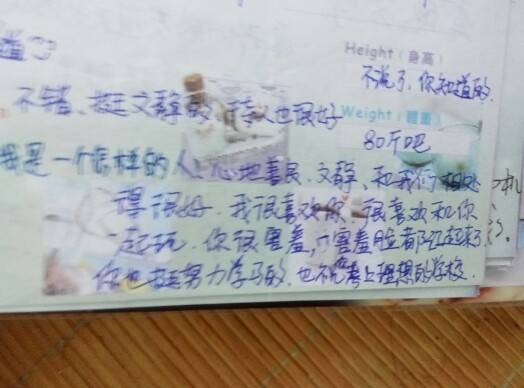 道
Height（身高）
不说了，你知道的.
不错、挺文静的，待人也很好
Weight（體重）
80斤吧
我是一个怎样的人：心地善良、文静、和我们相处
得很好. 我很喜欢你. 很喜欢和你
一起玩. 你很害羞，一害羞脸都红起来了
你也挺努力学习的. 也不忘考上理想的学校.